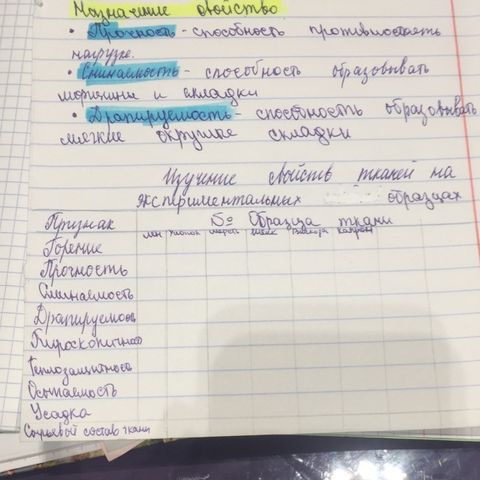 Назначение свойство
• Прочность - способность противостоять
нагрузке.
• Сминаемость - способность образовывать
морщины и складки
• Драпируемость - способность образовывать
мягкие округлые складки
Изучение свойств тканей на
экспериментальных образцах
Признак № Образца ткани
лен хлопок шерсть шелк вискоза капрон
Горение
Прочность
Сминаемость
Драпируемость
Гигроскопичност
Теплозащитность
Осыпаемость
Усадка
Сырьевой состав ткани